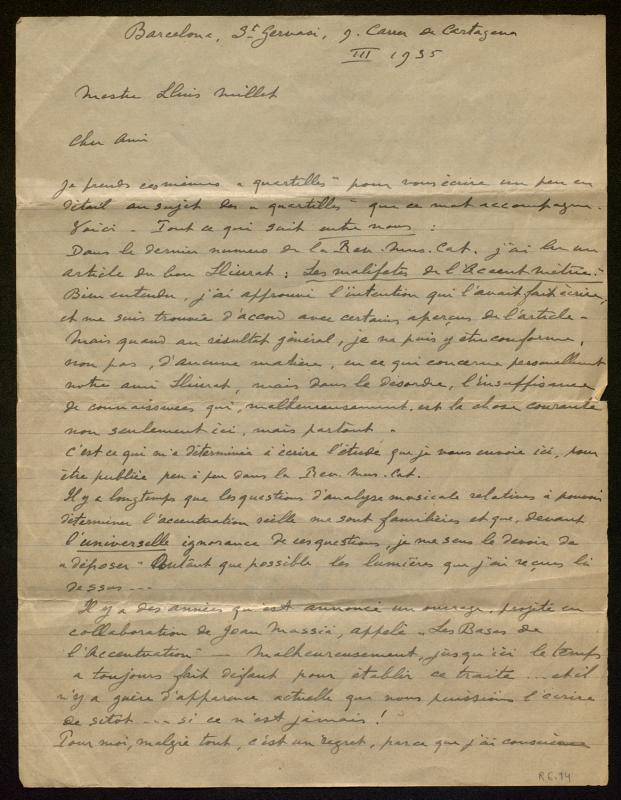 Barcelona, St Gervasi, 9. Carrer de Cartagena
III 1935
Mestre Lluis Millet
Cher Ami
Je prends ces mêmes « quartilles » pour vous écrire un peu en
détail au sujet des « quartilles » que ce mot accompagne.
Voici - Tout ce qui suit entre nous :
Dans le dernier numero de la Rev. Mus. Cat. j'ai lu un
article du bon Lliurat : Les malifetes de l'Accent mètric.
Bien entendu, j'ai approuvé l'intention qui l'avait fait écrire,
et me suis trouvée d'accord avec certains aperçus de l'article -
Mais quand au résultat général, je ne puis y être conforme,
non pas, d'aucune matière, en ce qui concerne personellement
notre ami Lliurat, mais dans le désordre, l'insuffisance
de connaissances qui, malheureusement, est la chose courante
non seulement ici, mais partout.
C'est ce qui m'a déterminée à écrire l'étude que je vous envoie ici, pour
être publiée peu à peu dans la Rev. Mus. Cat.
Il y a longtemps que les questions d'analyse musicale relatives à pouvoir
déterminer l'accentuation réelle me sont familières et que, devant
l'universelle ignorance de ces questions, je me sens le devoir de
« déposer » autant que possible les lumières que j'ai reçues là
dessus ---
Il y a des années qu'est annoncé un ouvrage, projeté en
collaboration de Joan Massià, appelé « Les Bases de
l'Accentuation » - Malheureusement, jusqu'ici le temps
a toujours fait défaut pour établir ce traité ... et il
n'y a guère d'apparence actuelle que nous puissions l'écrire
de sitôt --- si ce n'est jamais !
Pour moi, malgré tout, c'est un regret, parce que j'ai conscience
R.6.14